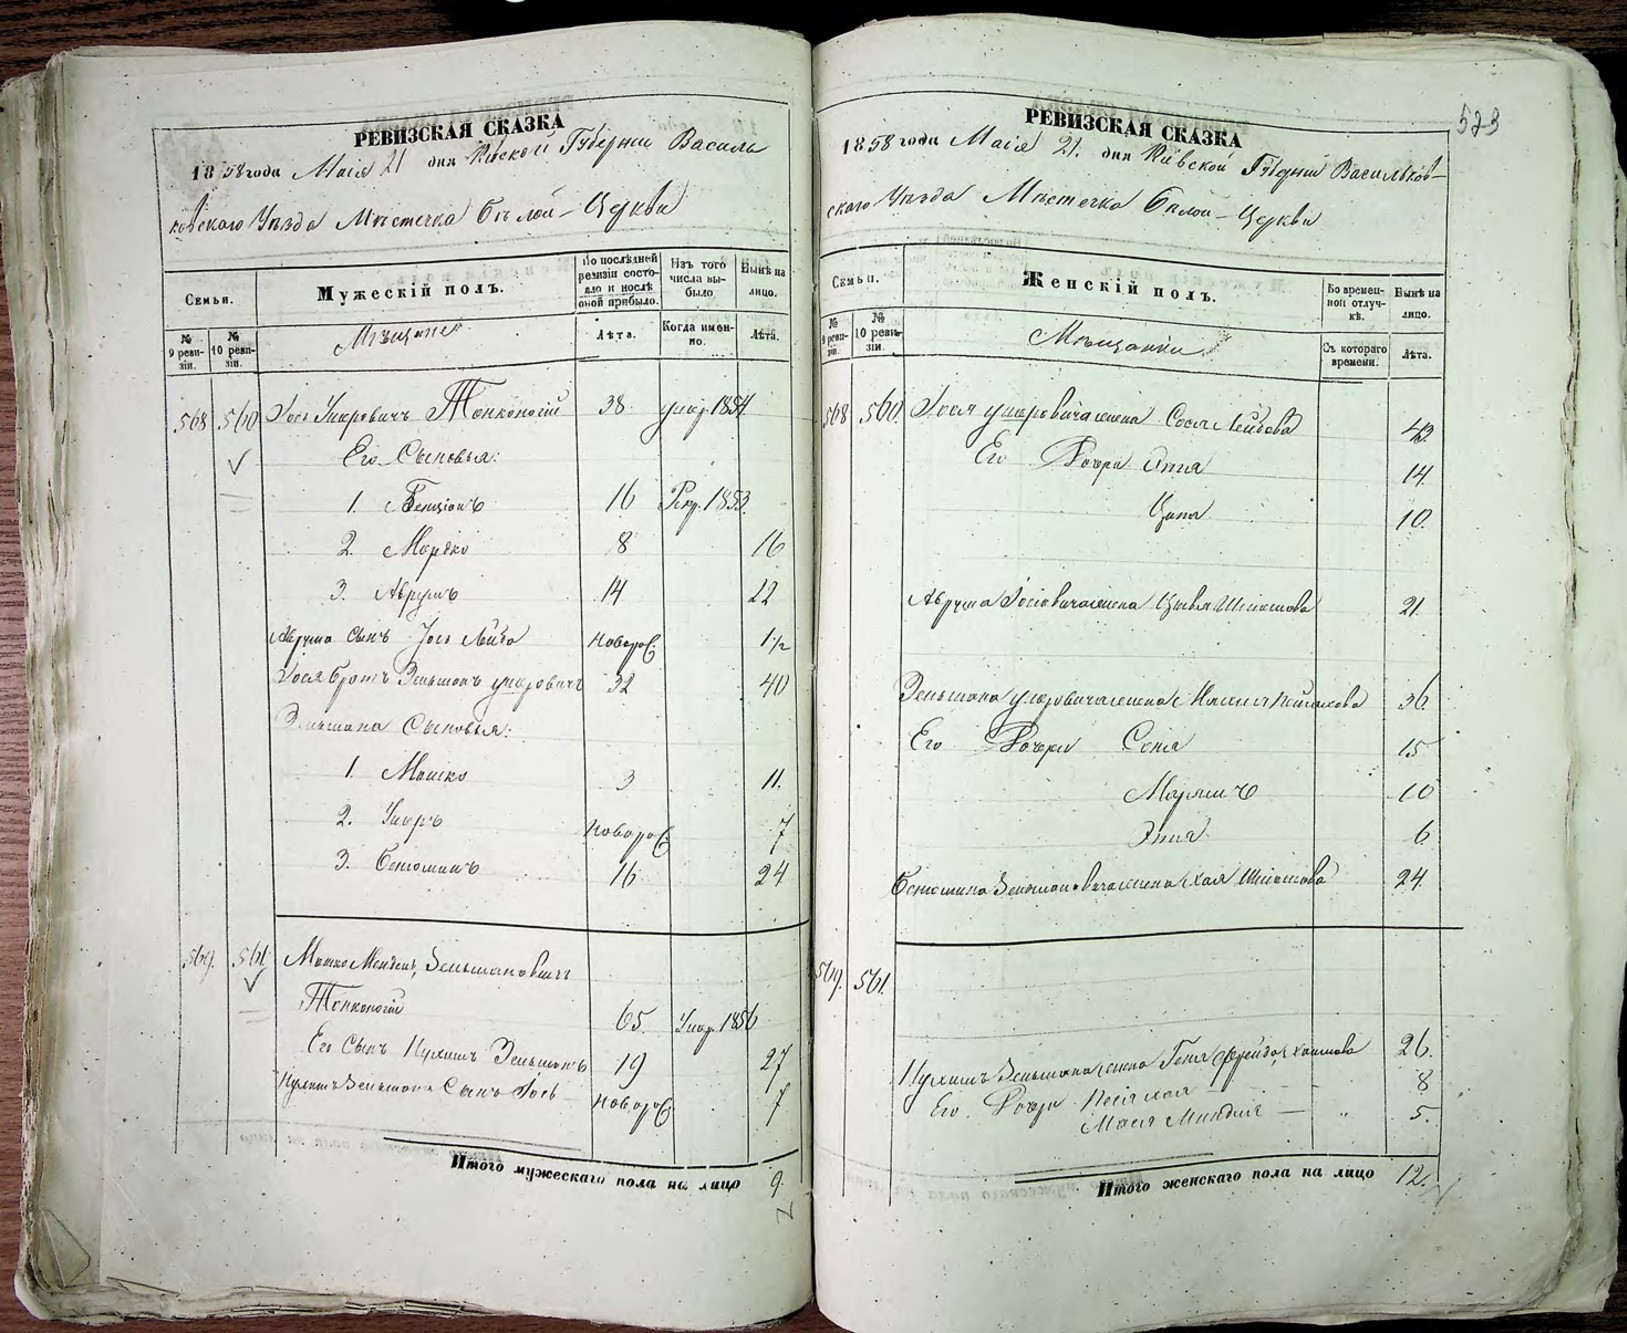 РЕВИЗСКАЯ СКАЗКА
1858 года Маія 21 дня Кіевской Губерніи Василь
ковскаго Уѣзда Мѣстечка Бѣлой-Церкви
Семьи.
Мужескій полъ.
По послѣдней ревизіи состояло и послѣ оной прибыло.
Изъ того числа выбыло
Нынѣ на лицо.
№ 9 ревизіи.
№ 10 ревизіи.
Мѣщане
Лѣта.
Когда именно.
Лѣта.
568 560 Іось Умеровичъ Тонконогій 38 умер. 1854
Его Сыновья:
1. Бенціонъ 16 Рекр. 1853
2. Мордко 8 16
3. Аврумъ 14 22
Аврума сынъ Іось Лейба новорож. 1 1/2
Іося братъ Зельманъ умеровичъ 32 40
Зельмана Сыновья:
1. Мошко 3 11.
2. Умеръ новорож. 7
3. Бенюминъ 16 24
569. 561 Мошко Мендель Зельмановичъ
Тонконогій 65. Умер. 1856
Его Сынъ Нухимъ Зельманъ 19 27
Нухима Зельмана Сынъ Іось новорож. 7
Итого мужескаго пола на лицо 9.
523
РЕВИЗСКАЯ СКАЗКА
1858 года Маія 21. дня Кіевской Губерніи Васильков-
скаго Уѣзда Мѣстечка Бѣлой-Церкви
Семьи.
Женскій полъ.
Во временной отлучкѣ.
Нынѣ на лицо.
№ 9 ревизіи.
№ 10 ревизіи.
Мѣщанки
Съ котораго времени.
Лѣта.
568 560. Іося умеровича жена Сося Лейбова 42.
Его Дочери Энтя 14.
Ципа 10.
Аврума Іосіовича жена Цывя 21.
Зельмана умеровича жена 36.
Его Дочери Соня 15
Марямъ 10
Энтя 6
Бенюмина Зельмановича жена Хая 24.
569. 561.
Нухима Зельмана жена Геня Фрейда Хаимова 26.
Его Дочери 8
5.
Итого женскаго пола на лицо 12.